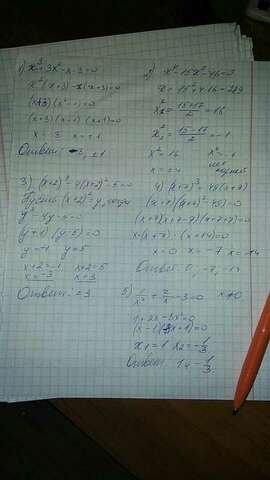 1) x³+3x²-x-3=0
x²(x+3)-x(x+3)=0
(x+3)(x²-1)=0
(x+3)(x-1)(x+1)=0
x=3 x=±1
Ответ: -3; ±1
2) x⁴-15x²-16=0
x²=(15+17)/2=16
x²=(15-17)/2=-1
x²=16 x²=-1
x=±4 нет
3) (x+2)⁴-4(x+2)²-5=0
Пусть (x+2)²=y, тогда
y²-4y-5=0
(y+1)(y-5)=0
y=-1 y=5
x+2=-1 x+2=5
x=-3 x=3
Ответ: ±3
4) (x+7)³=49(x+7)
(x+7)((x+7)²-49)=0
(x+7)(x+7-7)(x+7+7)=0
x·(x+7)·(x+14)=0
x=0 x=-7 x=-14
Ответ: 0, -7, -14
5) 1/x²+2/x-3=0 x≠0
1+2x-3x²=0
(x-1)(3x+1)=0
x₁=1 x₂=-1/3
Ответ: 1; -1/3